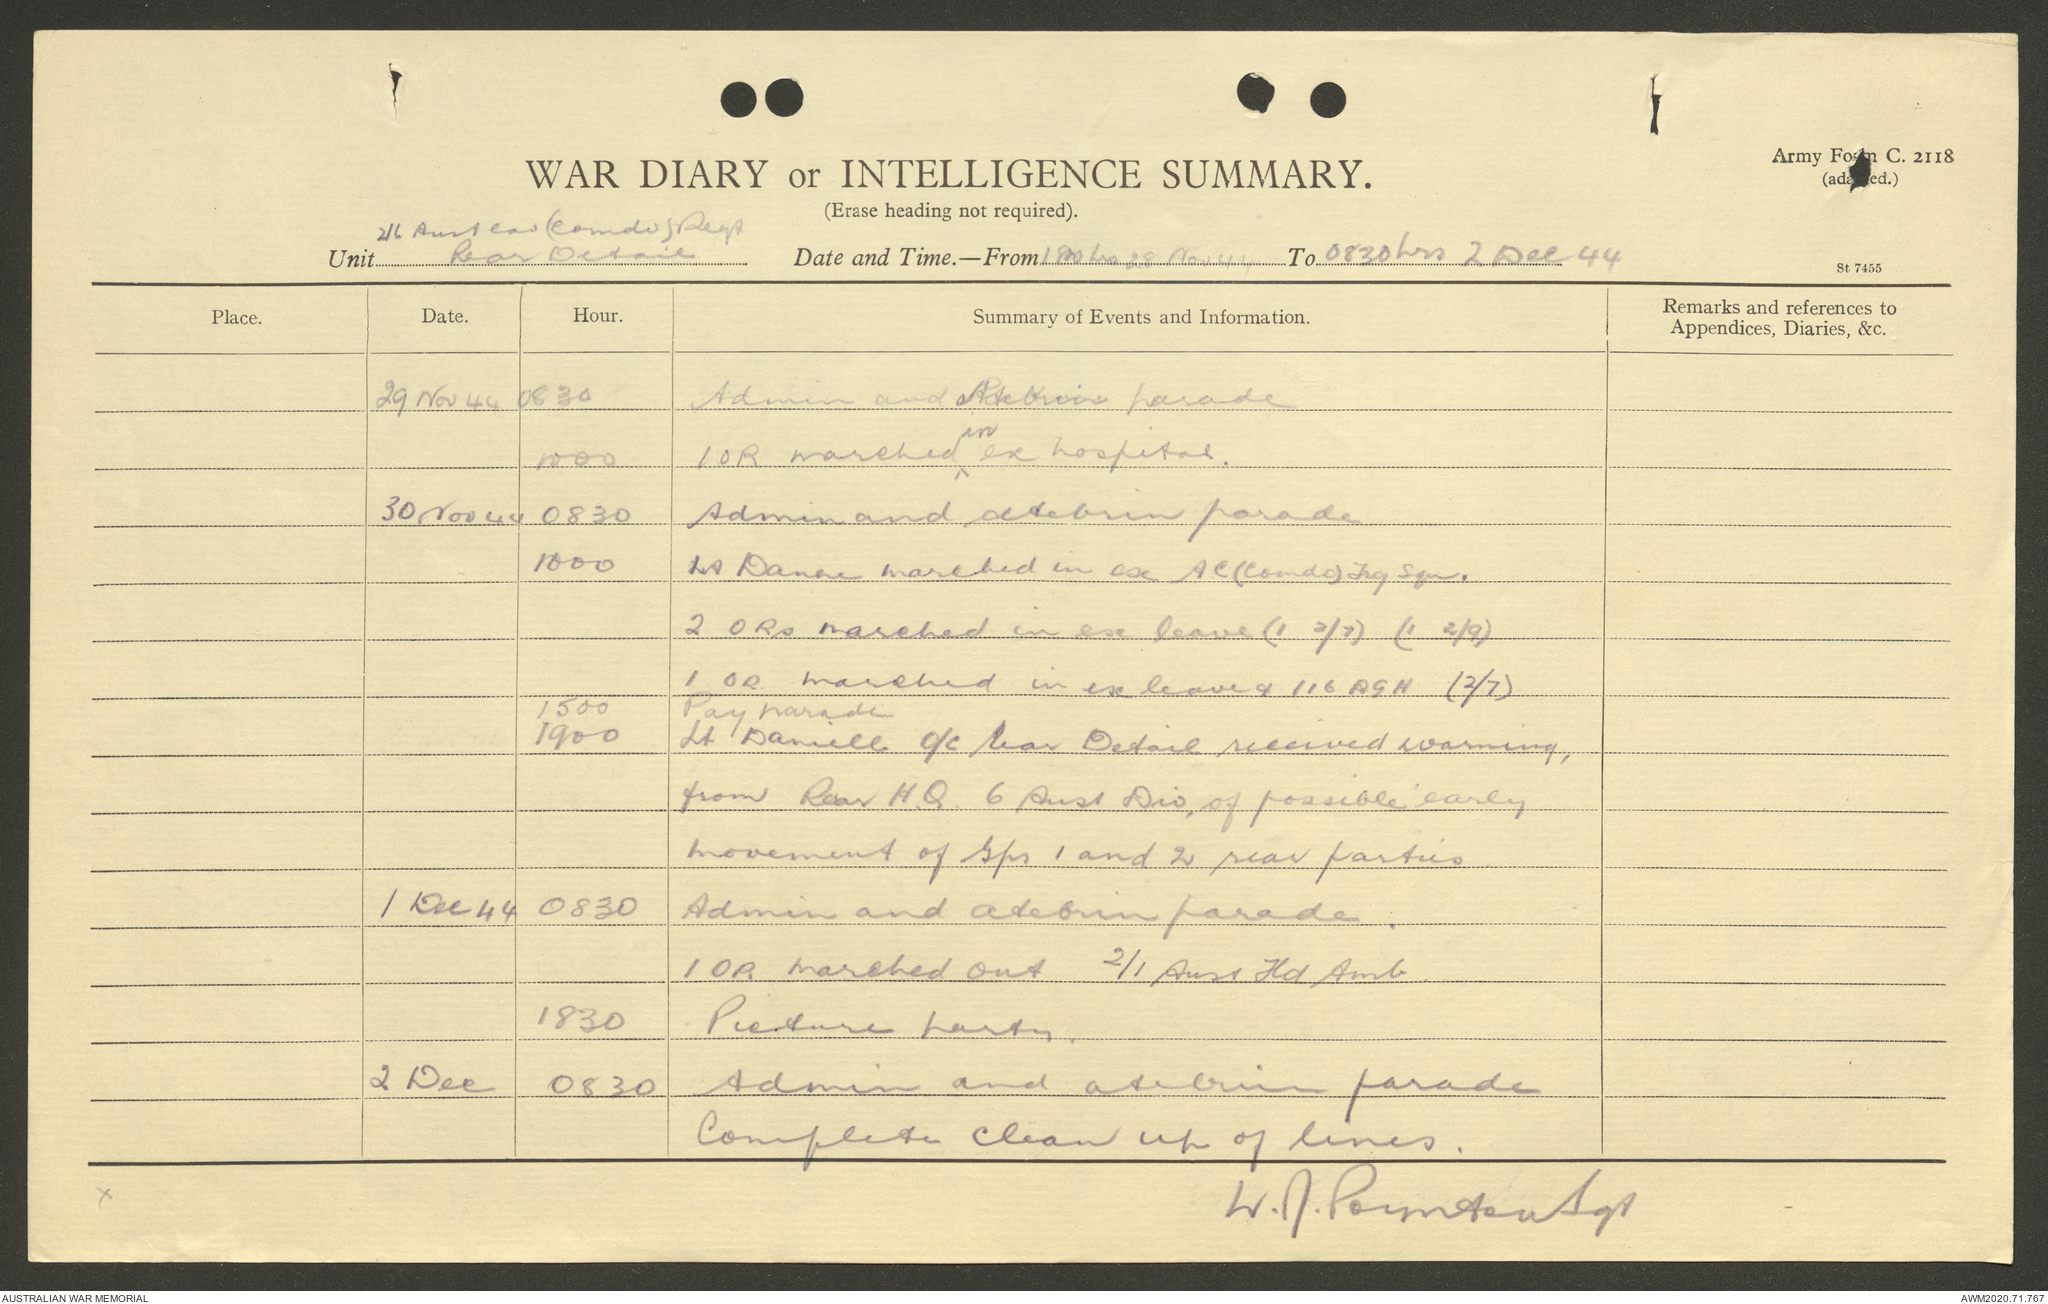 WAR DIARY or INTELLIGENCE SUMMARY.
Army Form C. 2118
(adapted.)
(Erase heading not required).
2/6 Aust Cav (Comdo) Regt
Unit Rear Detail Date and Time.—From 1800 hrs 28 Nov 44 To 0830 hrs 2 Dec 44
St 7455
Place. Date. Hour. Summary of Events and Information. Remarks and references to
Appendices, Diaries, &c.
29 Nov 44 0830 Admin and Atebrin parade
1000 1 OR marched in ex hospital.
30 Nov 44 0830 Admin and atebrin parade
1000 Lt marched in ex AC (Comdo) Trg Sqn.
2 ORs marched in ex leave (1 2/7) (1 2/9)
1 OR marched in ex leave & 116 AGH (2/7)
1500 Pay parade
1900 Lt Daniell O/C Rear Detail received warning,
from Rear H.Q. 6 Aust Div, of possible early
movement of Gps 1 and 2 rear parties
1 Dec 44 0830 Admin and atebrin parade.
1 OR marched out 2/1 Aust Fd Amb.
1830 Picture party.
2 Dec 0830 Admin and atebrin parade
Complete clean up of lines.
W. J. Poynton Sgt
x
AUSTRALIAN WAR MEMORIAL AWM2020.71.767